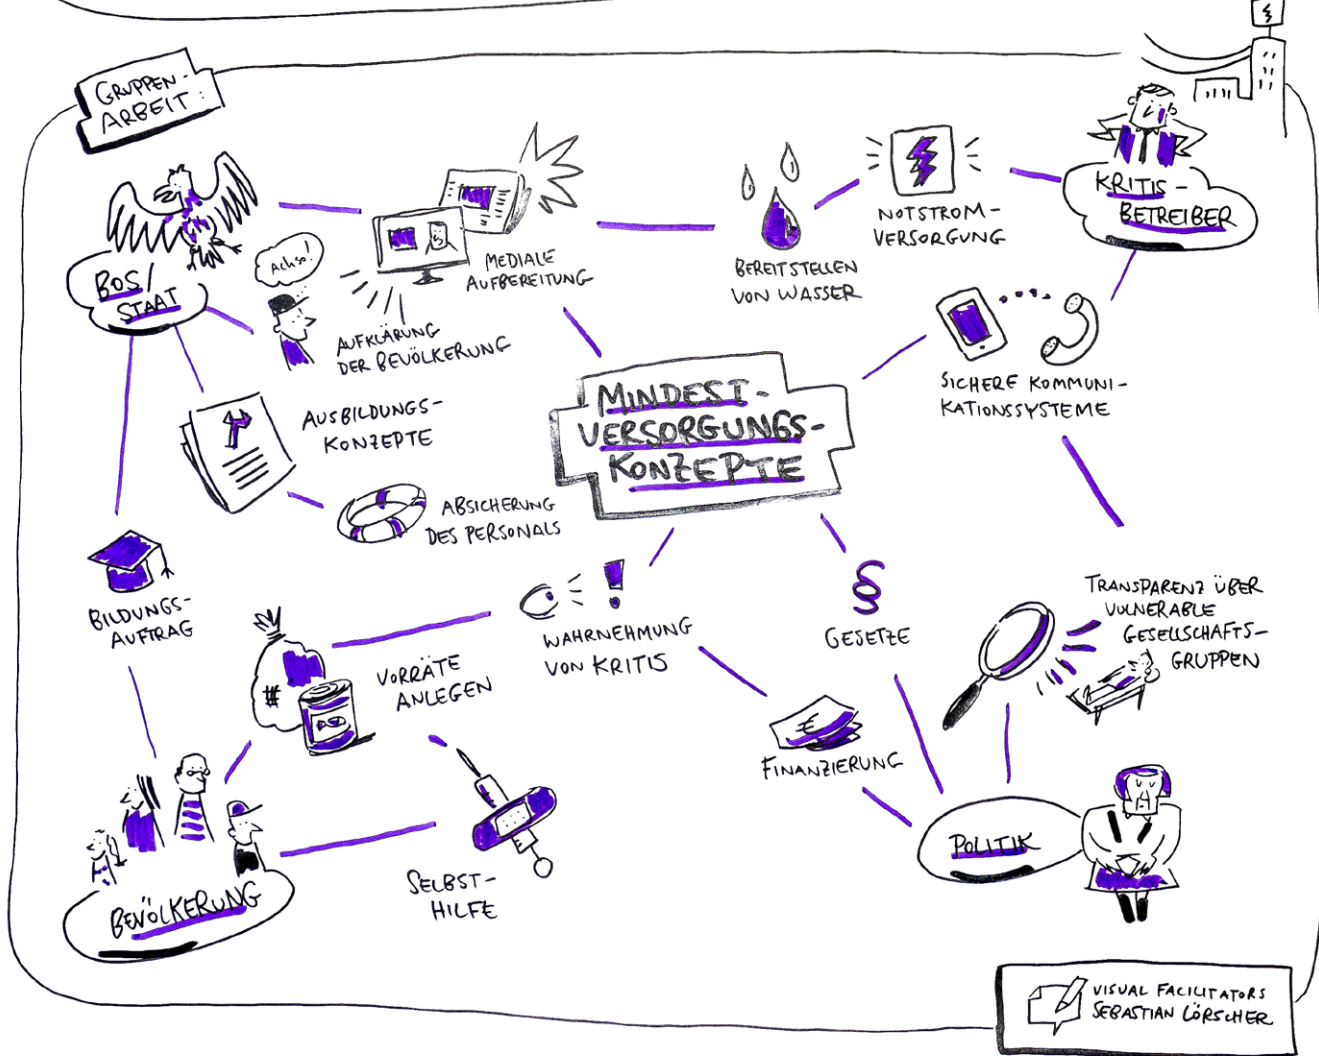 GRUPPEN-
ARBEIT:
BOS/
STAAT
Achso!
MEDIALE
AUFBEREITUNG
AUFKLÄRUNG
DER BEVÖLKERUNG
BEREITSTELLEN
VON WASSER
NOTSTROM-
VERSORGUNG
KRITIS-
BETREIBER
SICHERE KOMMUNI-
KATIONSSYSTEME
AUSBILDUNGS-
KONZEPTE
ABSICHERUNG
DES PERSONALS
MINDEST-
VERSORGUNGS-
KONZEPTE
BILDUNGS-
AUFTRAG
VORRÄTE
ANLEGEN
#
WAHRNEHMUNG
VON KRITIS
!
§
GESETZE
TRANSPARENZ ÜBER
VULNERABLE
GESELLSCHAFTS-
GRUPPEN
€
FINANZIERUNG
POLITIK
SELBST-
HILFE
BEVÖLKERUNG
VISUAL FACILITATORS
SEBASTIAN LÖRSCHER